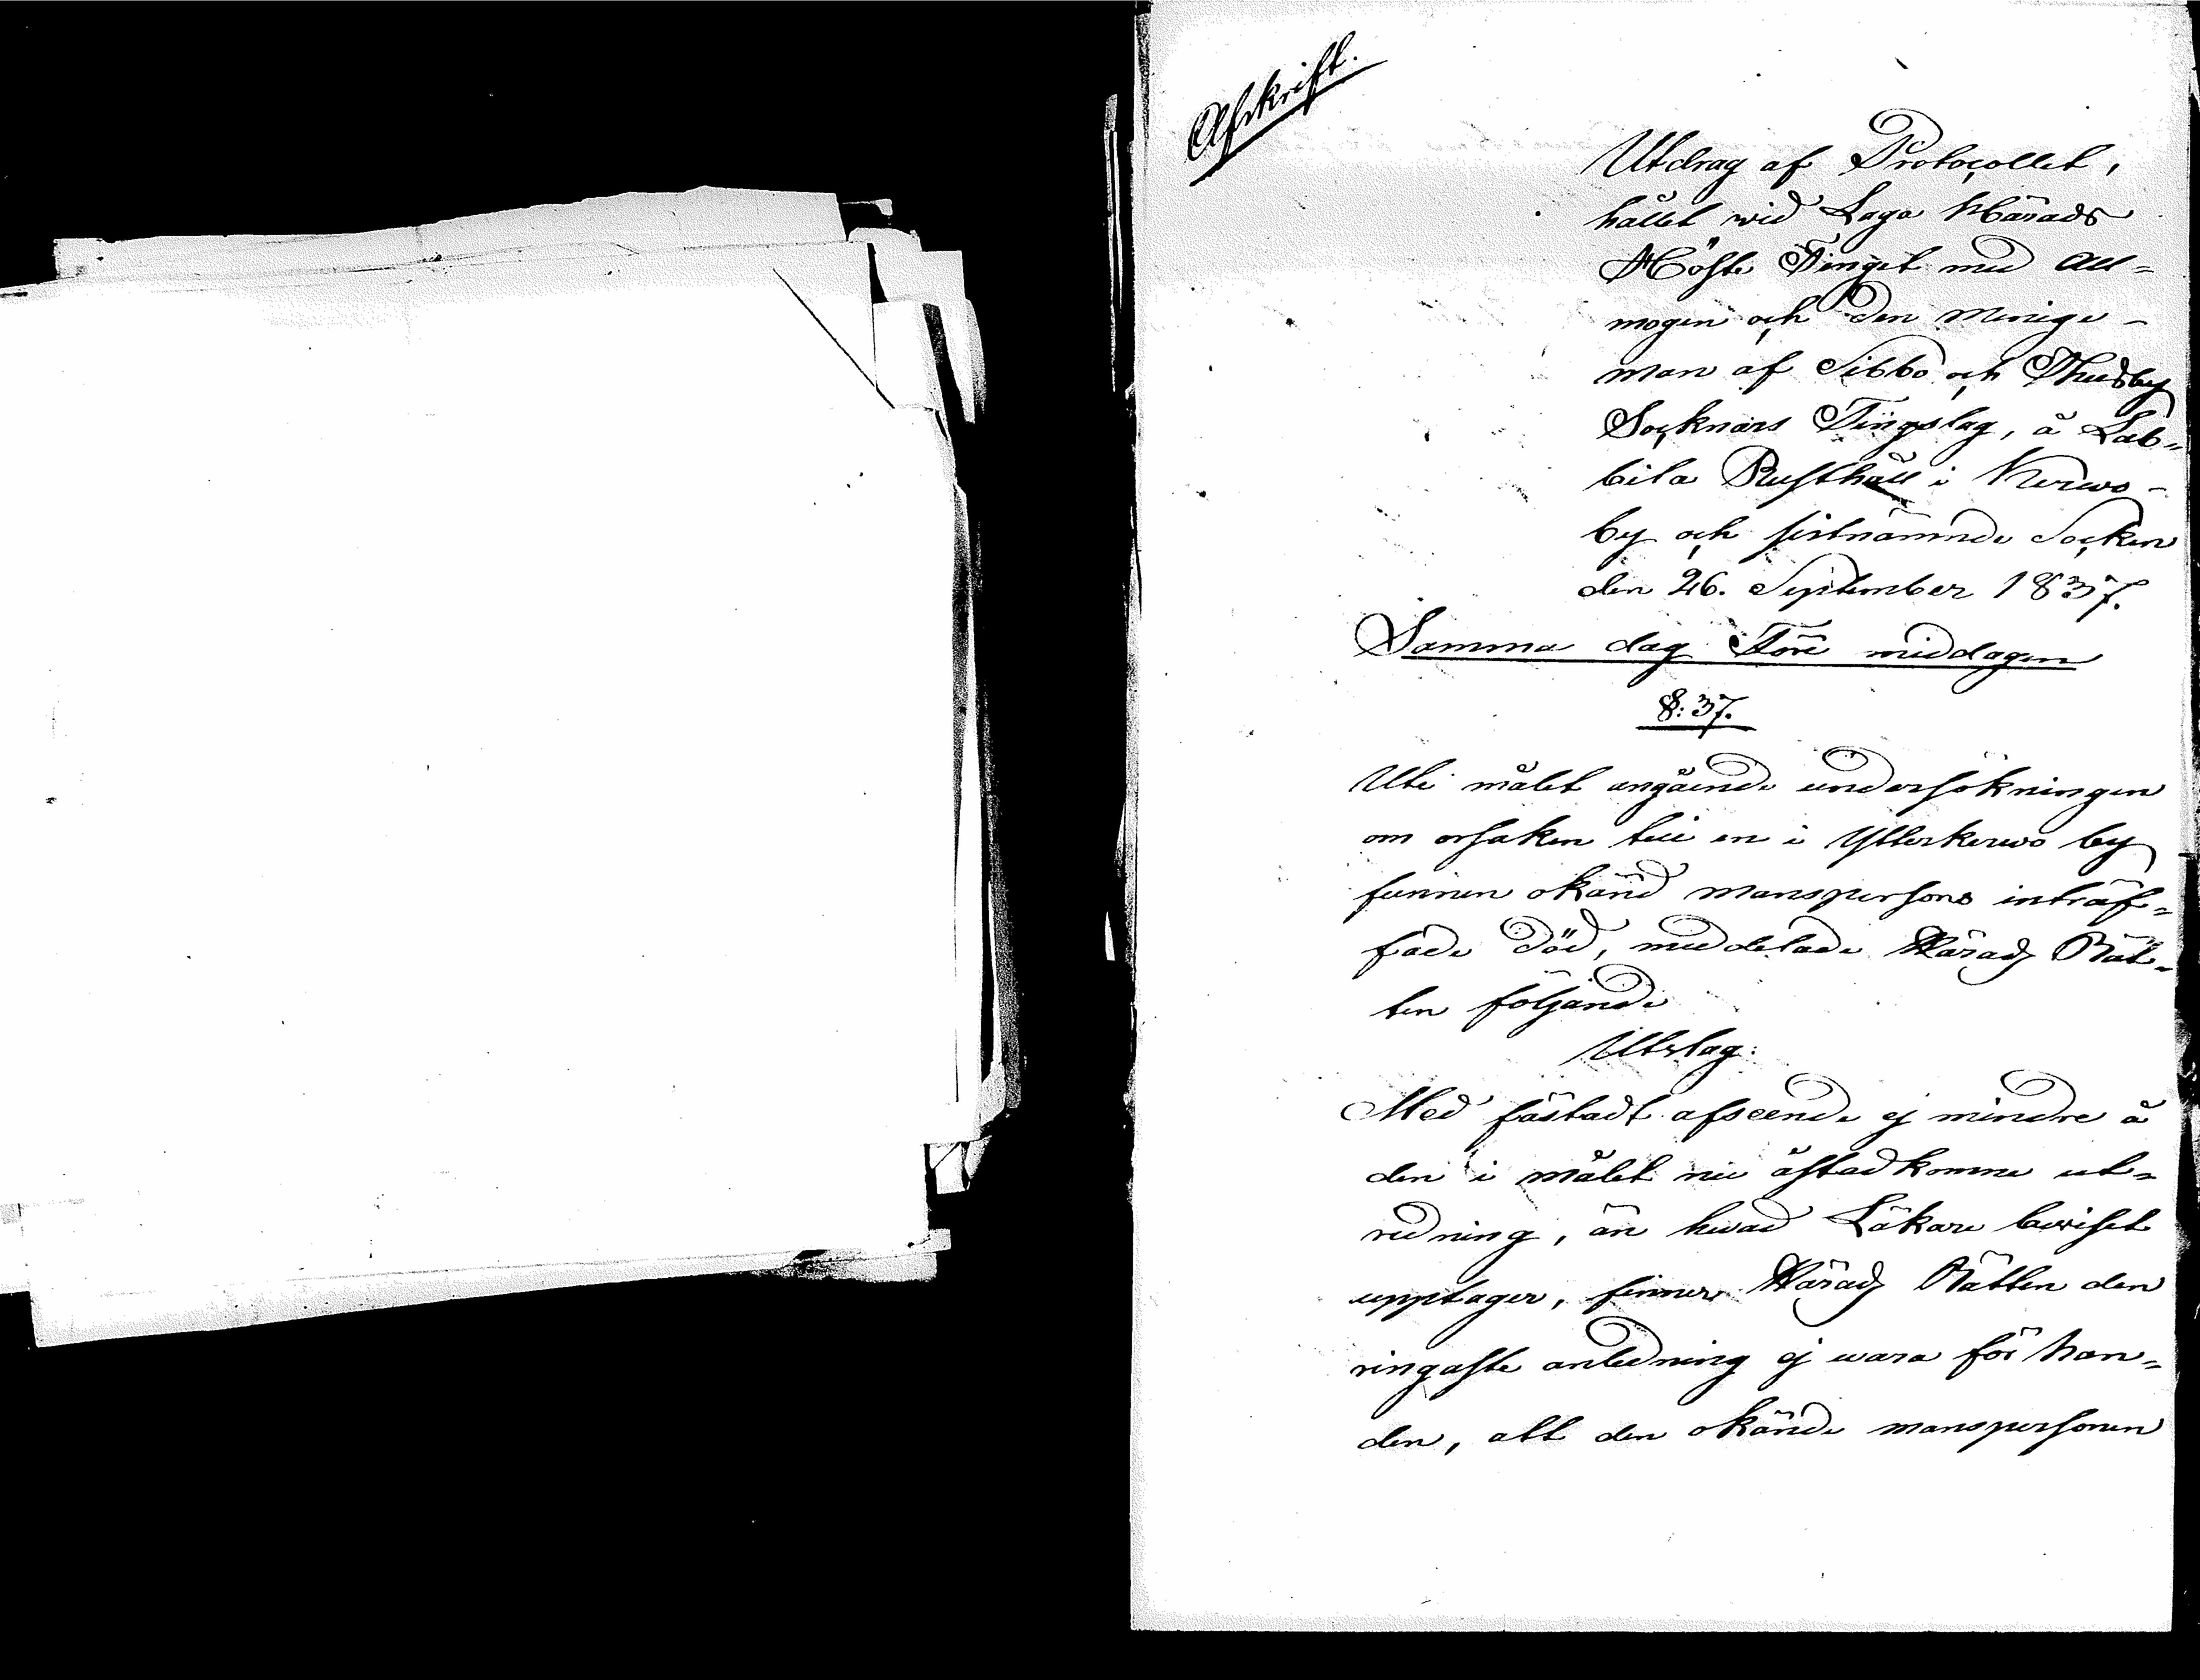 Afskrift.
Utdrag af Protocollet,
hållet wid Laga Härads
Höste Tinget med All=
mogen och den Menige-
man af Sibbo och Thusby
Socknars Tingslag, å Lab-
bila Rusthåll i Kerwo-
by och sistnämnde Socken
den 26. September 1837.
Samma dag Före middagen
§: 37.
Uti målet angående undersökningen
om orsaken till en i Ytterkerwo by
funnen okänd manspersons inträf=
fade död, meddelade Härads Rät-
ten följande
Utslag:
Med fästadt afseende ej mindre å
den i målet nu åstadkomne ut=
redning, än hwad Läkare bewiset
upptager, finner Härads Rätten den
ringaste anledning ej wara för han=
den, att den okände manspersonen